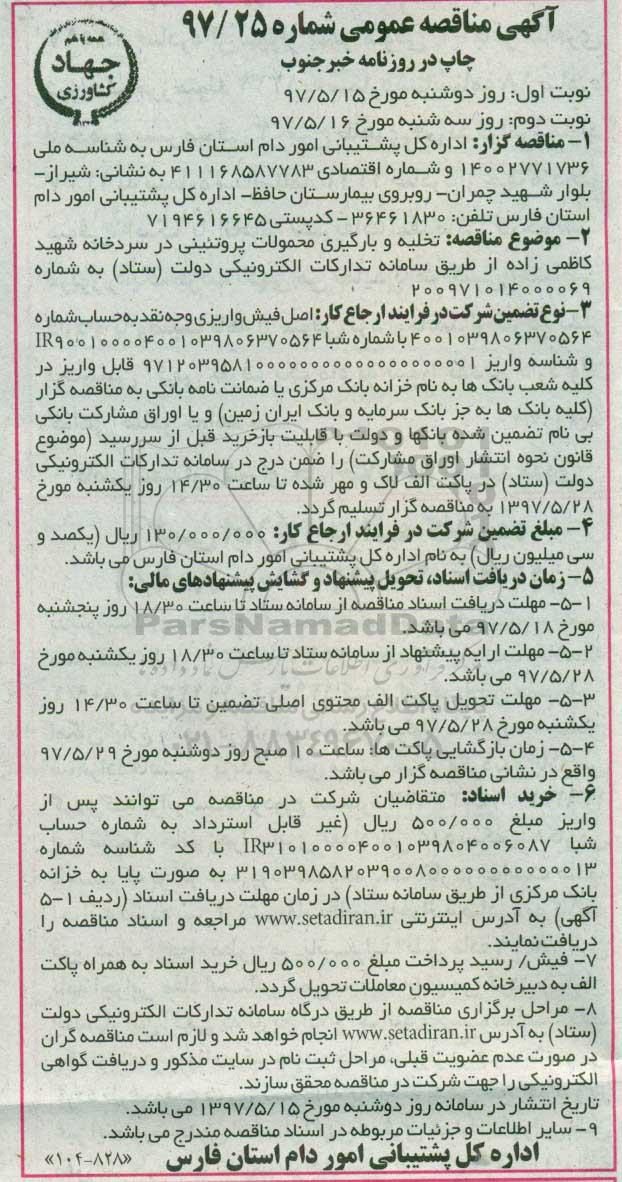 آگهی مناقصه عمومی شماره ۹۷/۲۵
چاپ در روزنامه خبر جنوب
همه با هم
جهاد
کشاورزی
نوبت اول: روز دوشنبه مورخ ۹۷/۵/۱۵
نوبت دوم: روز سه شنبه مورخ ۹۷/۵/۱۶
۱- مناقصه گزار: اداره کل پشتیبانی امور دام استان فارس به شناسه ملی
۱۴۰۰۲۷۷۱۷۳۶ و شماره اقتصادی ۴۱۱۱۶۸۵۸۷۷۸۳ به نشانی: شیراز-
بلوار شهید چمران- روبروی بیمارستان حافظ- اداره کل پشتیبانی امور دام
استان فارس تلفن: ۳۶۴۶۱۸۳۰ - کدپستی ۷۱۹۴۶۱۶۶۴۵
۲- موضوع مناقصه: تخلیه و بارگیری محمولات پروتئینی در سردخانه شهید
کاظمی زاده از طریق سامانه تدارکات الکترونیکی دولت (ستاد) به شماره
۲۰۰۹۷۱۰۱۴۰۰۰۰۶۹
۳- نوع تضمین شرکت در فرایند ارجاع کار: اصل فیش واریزی وجه نقد به حساب شماره
۴۰۰۱۰۳۹۸۰۶۳۷۰۵۶۴ با شماره شبا IR۹۰۰۱۰۰۰۰۴۰۰۱۰۳۹۸۰۶۳۷۰۵۶۴
و شناسه واریز قابل واریز در
کلیه شعب بانک ها به نام خزانه بانک مرکزی یا ضمانت نامه بانکی به مناقصه گزار
(کلیه بانک ها به جز بانک سرمایه و بانک ایران زمین) و یا اوراق مشارکت بانکی
بی نام تضمین شده بانکها و دولت با قابلیت بازخرید قبل از سررسید (موضوع
قانون نحوه انتشار اوراق مشارکت) را ضمن درج در سامانه تدارکات الکترونیکی
دولت (ستاد) در پاکت الف لاک و مهر شده تا ساعت ۱۴/۳۰ روز یکشنبه مورخ
۱۳۹۷/۵/۲۸ به مناقصه گزار تسلیم گردد.
۴- مبلغ تضمین شرکت در فرایند ارجاع کار: ۱۳۰/۰۰۰/۰۰۰ ریال (یکصد و
سی میلیون ریال) به نام اداره کل پشتیبانی امور دام استان فارس می باشد.
۵- زمان دریافت اسناد، تحویل پیشنهاد و گشایش پیشنهادهای مالی:
۵-۱- مهلت دریافت اسناد مناقصه از سامانه ستاد تا ساعت ۱۸/۳۰ روز پنجشنبه
مورخ ۹۷/۵/۱۸ می باشد.
ParsNamadData
۵-۲- مهلت ارایه پیشنهاد از سامانه ستاد تا ساعت ۱۸/۳۰ روز یکشنبه مورخ
۹۷/۵/۲۸ می باشد.
۵-۳- مهلت تحویل پاکت الف محتوی اصلی تضمین تا ساعت ۱۴/۳۰ روز
یکشنبه مورخ ۹۷/۵/۲۸ می باشد.
۵-۴- زمان بازگشایی پاکت ها: ساعت ۱۰ صبح روز دوشنبه مورخ ۹۷/۵/۲۹
واقع در نشانی مناقصه گزار می باشد.
۶- خرید اسناد: متقاضیان شرکت در مناقصه می توانند پس از
واریز مبلغ ۵۰۰/۰۰۰ ریال (غیر قابل استرداد به شماره حساب
شبا IR۳۱۰۱۰۰۰۰۴۰۰۱۰۳۹۸۰۴۰۰۶۰۸۷ با کد شناسه شماره
به صورت پایا به خزانه
بانک مرکزی از طریق سامانه ستاد) در زمان مهلت دریافت اسناد (ردیف ۱-۵
آگهی) به آدرس اینترنتی www.setadiran.ir مراجعه و اسناد مناقصه را
دریافت نمایند.
۷- فیش/ رسید پرداخت مبلغ ۵۰۰/۰۰۰ ریال خرید اسناد به همراه پاکت
الف به دبیرخانه کمیسیون معاملات تحویل گردد.
۸- مراحل برگزاری مناقصه از طریق درگاه سامانه تدارکات الکترونیکی دولت
(ستاد) به آدرس www.setadiran.ir انجام خواهد شد و لازم است مناقصه گران
در صورت عدم عضویت قبلی، مراحل ثبت نام در سایت مذکور و دریافت گواهی
الکترونیکی را جهت شرکت در مناقصه محقق سازند.
تاریخ انتشار در سامانه روز دوشنبه مورخ ۱۳۹۷/۵/۱۵ می باشد.
۹- سایر اطلاعات و جزئیات مربوطه در اسناد مناقصه مندرج می باشد.
اداره کل پشتیبانی امور دام استان فارس «۱۰۴-۸۲۸»